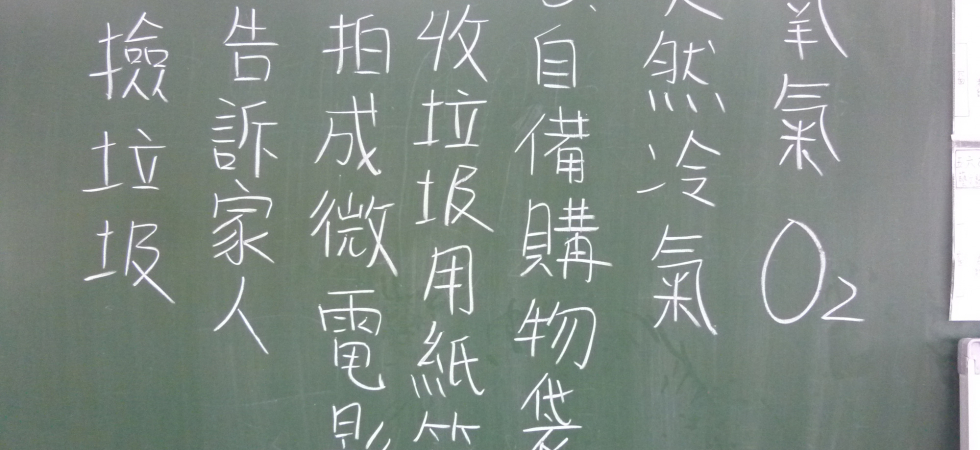 氧氣 O2
天然冷氣
自備購物袋
收垃圾用紙
拍成微電影
告訴家人
撿垃圾